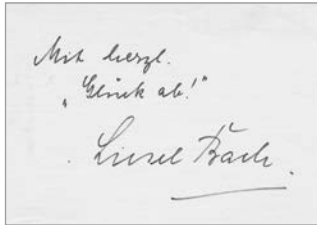 Mit herzl.
„Glück ab!"
Liesel Bach.